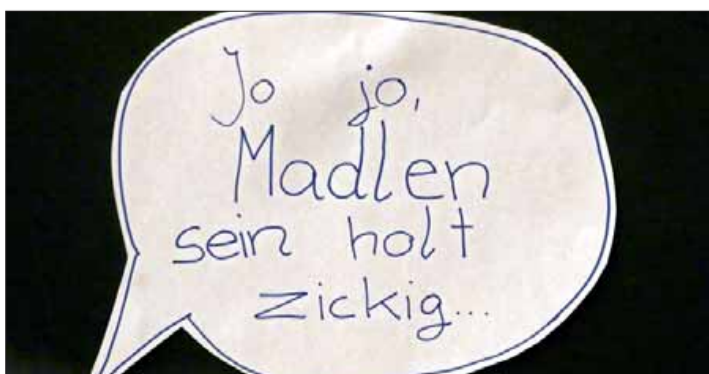 Jo jo,
Madlen
sein holt
zickig...